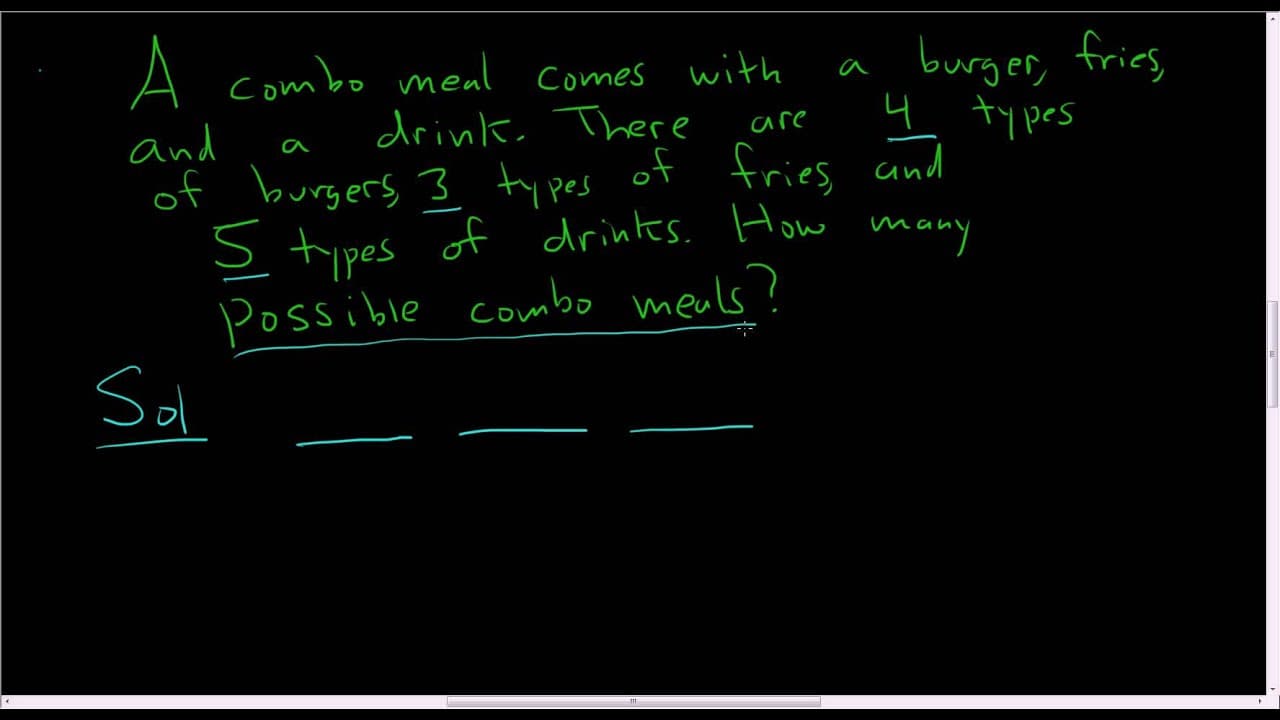 A combo meal comes with a burger, fries,
and a drink. There are 4 types
of burgers, 3 types of fries, and
5 types of drinks. How many
possible combo meals?
Sol